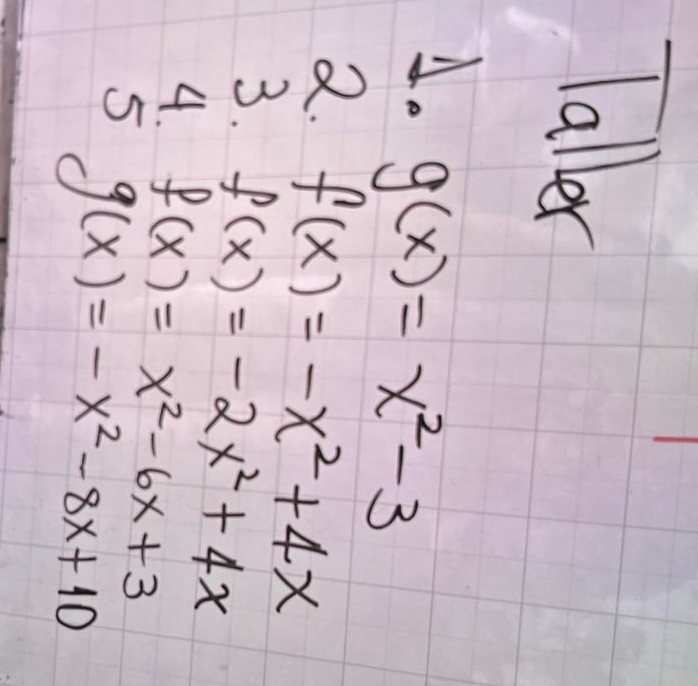 Taller
1. g(x) = x² - 3
2. f(x) = -x² + 4x
3. f(x) = -2x² + 4x
4. f(x) = x² - 6x + 3
5 g(x) = -x² - 8x + 10